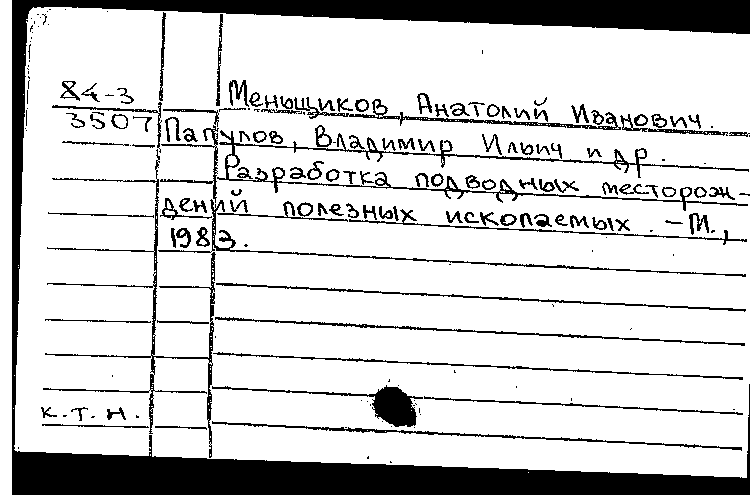 84-3 Меньщиков, Анатолий Иванович.
3507 Папулов, Владимир Ильич и др.
Разработка подводных месторож-
дений полезных ископаемых. - М.,
1983.
к.т.н.